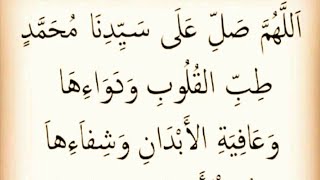 اَللَّهُمَّ صَلِّ عَلَى سَيِّدِنَا مُحَمَّدٍ
طِبِّ القُلُوبِ وَدَوَاءِهَا
وَعَافِيَةِ الأَبْدَانِ وَشِفَاءِهاَ